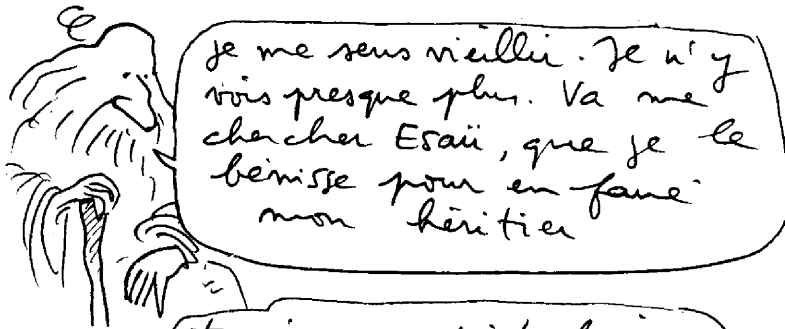 je me sens vieillir. Je n'y
vois presque plus. Va me
chercher Esaü, que je le
bénisse pour en faire
mon héritier